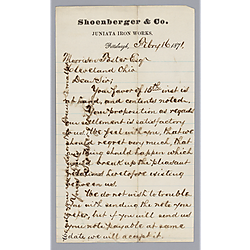 Shoenberger & Co.
JUNIATA IRON WORKS.
Pittsburgh, Febry 16 1871.
Morrison Foster Esq
Cleveland Ohio
Dear Sir;
Your favor of 15th inst is
at hand, and contents noted.
Your proposition as regards
settlement is satisfactory
We feel with you, that we
should regret very much, that
anything should happen which
would break up the pleasant
relations heretofore existing
between us.
We do not wish to trouble
you with sending the note you
but if you will send us
your note payable at same
date we will accept it.